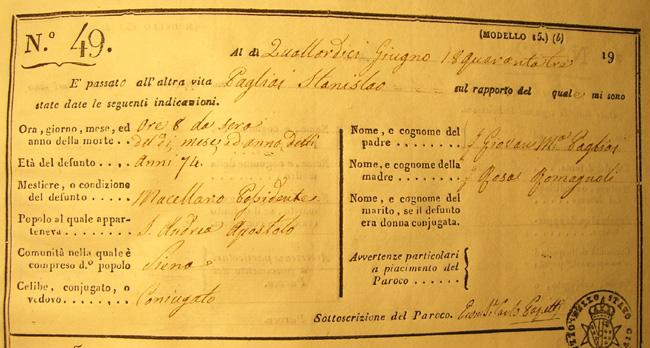 N.º 49.
(MODELLO 15.) (b)
Al dì Quattordici Giugno 18quarantatre 19
E' passato all'altra vita Pagliai Stanislao sul rapporto del quale mi sono
state date le seguenti indicazioni.
Ora, giorno, mese, ed Ore 8 da sera
anno della morte .. del dì, mese, ed anno, detti
Età del defunto .... Anni 74.
Mestiere, o condizione
del defunto ..... Macellaro Possidente
Popolo al quale appar-
teneva ....... S. Andrea Apostolo
Comunità nella quale è
compreso d.º popolo Siena
Celibe, conjugato, o
vedovo ....... Conjugato
Nome, e cognome del
padre ........ f Giovan M.ª Pagliai
Nome, e cognome della
madre ........ f Rosa Romagnoli
Nome, e cognome del
marito, se il defunto
era donna conjugata.
Avvertenze particolari
a piacimento del
Paroco .......
Sottoscrizione del Paroco.
STATO CI